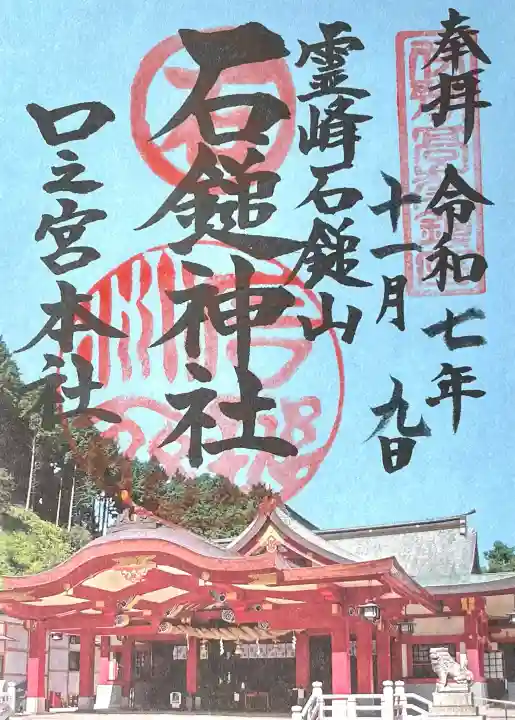 奉拝
令和七年
十一月
九日
霊峰石鎚山
石鎚神社
口之宮本社